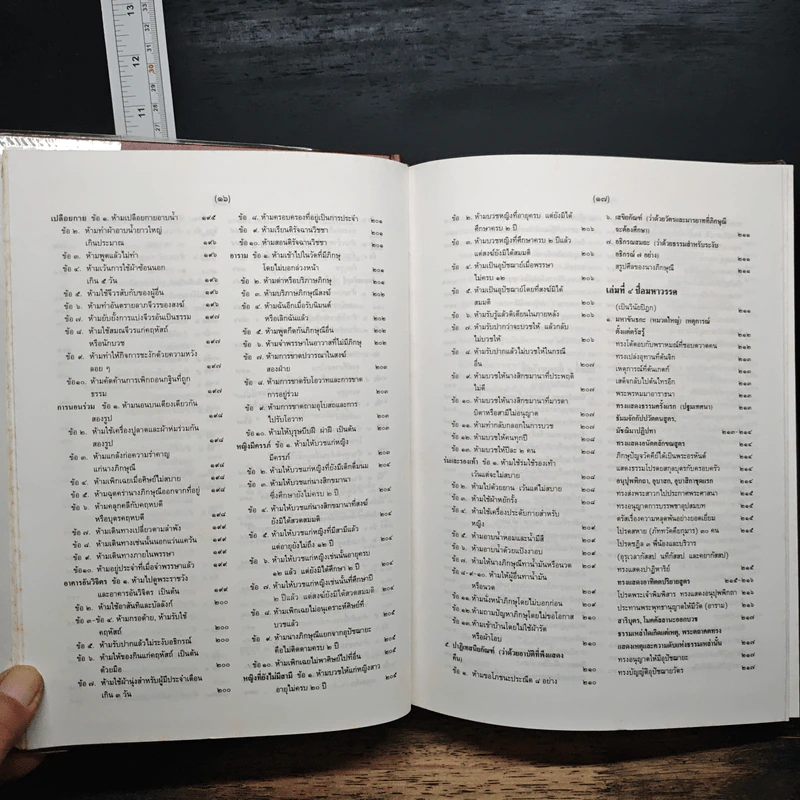 13
12
30
11
(๑๖)
เปลือยกาย ข้อ ๑. ห้ามเปลือยกายอาบน้ำ ๑๙๕
ข้อ ๒. ห้ามทำผ้าอาบน้ำยาวใหญ่
เกินประมาณ ๑๙๖
ข้อ ๓. ห้ามพูดแล้วไม่ทำ ๑๙๖
ข้อ ๔. ห้ามเว้นการใช้ผ้าซ้อนนอก
เกิน ๕ วัน ๑๙๖
ข้อ ๕. ห้ามใช้จีวรสับกับของผู้อื่น ๑๙๖
ข้อ ๖. ห้ามทำอันตรายลาภจีวรของสงฆ์ ๑๙๖
ข้อ ๗. ห้ามยับยั้งการแบ่งจีวรอันเป็นธรรม ๑๙๗
ข้อ ๘. ห้ามให้สมณจีวรแก่คฤหัสถ์
หรือนักบวช ๑๙๗
ข้อ ๙. ห้ามทำให้กิจการชะงักด้วยความหวัง
ลอย ๆ ๑๙๗
ข้อ๑๐. ห้ามคัดค้านการเพิกถอนกฐินที่ถูก
ธรรม ๑๙๗
การนอนร่วม ข้อ ๑. ห้ามนอนบนเตียงเดียวกัน
สองรูป
ข้อ ๒. ห้ามใช้เครื่องปูลาดและผ้าห่มร่วมกัน
สองรูป ๑๙๘
ข้อ ๓. ห้ามแกล้งก่อความรำคาญ
แก่นางภิกษุณี ๑๙๘
ข้อ ๔. ห้ามเพิกเฉยเมื่อศิษย์ไม่สบาย ๑๙๘
ข้อ ๕. ห้ามฉุดคร่านางภิกษุณีออกจากที่อยู่ ๑๙๘
ข้อ ๖. ห้ามคลุกคลีกับคฤหบดี
หรือบุตรคฤหบดี ๑๙๘
ข้อ ๗. ห้ามเดินทางเปลี่ยวตามลำพัง ๑๙๙
ข้อ ๘. ห้ามเดินทางเช่นนั้นนอกแว่นแคว้น ๑๙๙
ข้อ ๙. ห้ามเดินทางภายในพรรษา ๑๙๙
ข้อ๑๐. ห้ามอยู่ประจำที่เมื่อจำพรรษาแล้ว ๑๙๙
อาคารอันวิจิตร ข้อ ๑. ห้ามไปดูพระราชวัง
และอาคารอันวิจิตร เป็นต้น ๑๙๙
ข้อ ๒. ห้ามใช้อาสันทิและบัลลังก์ ๒๐๐
ข้อ ๓-ข้อ ๔. ห้ามกรอด้าย, ห้ามรับใช้
คฤหัสถ์ ๒๐๐
ข้อ ๕. ห้ามรับปากแล้วไม่ระงับอธิกรณ์ ๒๐๐
ข้อ ๖. ห้ามให้ของกินแก่คฤหัสถ์ เป็นต้น
ด้วยมือ ๒๐๐
ข้อ ๗. ห้ามใช้ผ้านุ่งสำหรับผู้มีประจำเดือน
เกิน ๓ วัน ๒๐๐
ข้อ ๘. ห้ามครอบครองที่อยู่เป็นการประจำ ๒๐๑
ข้อ ๙. ห้ามเรียนดิรัจฉานวิชชา ๒๐๑
ข้อ ๑๐. ห้ามสอนดิรัจฉานวิชชา ๒๐๑
อาราม ข้อ ๑. ห้ามเข้าไปในวัดที่มีภิกษุ
โดยไม่บอกล่วงหน้า ๒๐๑
ข้อ ๒. ห้ามด่าหรือบริภาษภิกษุ ๒๐๒
ข้อ ๓. ห้ามบริภาษภิกษุณีสงฆ์ ๒๐๒
ข้อ ๔. ห้ามฉันอีกเมื่อรับนิมนต์
หรือเลิกฉันแล้ว ๒๐๒
ข้อ ๕. ห้ามพูดกีดกันภิกษุณีอื่น ๒๐๒
ข้อ ๖. ห้ามจำพรรษาในอาวาสที่ไม่มีภิกษุ ๒๐๒
ข้อ ๗. ห้ามการขาดปวารณาในสงฆ์
สองฝ่าย ๒๐๓
ข้อ ๘. ห้ามการขาดรับโอวาทและการขาด
การอยู่ร่วม ๒๐๓
ข้อ ๙. ห้ามการขาดถามอุโบสถและการ
ไปรับโอวาท ๒๐๓
ข้อ ๑๐. ห้ามให้บุรุษบีบฝี ผ่าฝี เป็นต้น ๒๐๓
หญิงมีครรภ์ ข้อ ๑. ห้ามให้บวชแก่หญิง
มีครรภ์ ๒๐๓
ข้อ ๒. ห้ามให้บวชแก่หญิงที่ยังมีเด็กดื่มนม ๒๐๔
ข้อ ๓. ห้ามให้บวชแก่นางสิกขมานา
ซึ่งศึกษายังไม่ครบ ๒ ปี ๒๐๔
ข้อ ๔. ห้ามให้บวชแก่นางสิกขมานาที่สงฆ์
ยังมิได้สวดสมมติ ๒๐๔
ข้อ ๕. ห้ามให้บวชแก่หญิงที่มีสามีแล้ว
แต่อายุยังไม่ถึง ๑๒ ปี ๒๐๔
ข้อ ๖. ห้ามให้บวชแก่หญิงเช่นนั้นอายุครบ
๑๒ แล้ว แต่ยังมิได้ศึกษา ๒ ปี ๒๐๔
ข้อ ๗. ห้ามให้บวชแก่หญิงเช่นนั้นที่ศึกษาปี
๒ ปีแล้ว แต่สงฆ์ยังมิได้สวดสมมติ ๒๐๕
ข้อ ๘. ห้ามเพิกเฉยไม่อนุเคราะห์ศิษย์ที่
บวชแล้ว ๒๐๕
ข้อ ๙. ห้ามนางภิกษุณีแยกจากอุปัชฌายะ
คือไม่ติดตามครบ ๒ ปี ๒๐๕
ข้อ ๑๐. ห้ามเพิกเฉยไม่พาศิษย์ไปที่อื่น ๒๐๕
หญิงที่ยังไม่มีสามี ข้อ ๑. ห้ามบวชให้แก่หญิงสาว
อายุไม่ครบ ๒๐ ปี ๒๐๕
(๑๗)
ข้อ ๒. ห้ามบวชหญิงที่อายุครบ แต่ยังมิได้
ศึกษาครบ ๒ ปี ๒๐๖
ข้อ ๓. ห้ามบวชหญิงที่ศึกษาครบ ๒ ปีแล้ว
แต่สงฆ์ยังมิได้สมมติ ๒๐๖
ข้อ ๔. ห้ามเป็นอุปัชฌาย์เมื่อพรรษา
ไม่ครบ ๑๒ ๒๐๖
ข้อ ๕. ห้ามเป็นอุปัชฌาย์โดยที่สงฆ์มิได้
สมมติ ๒๐๖
ข้อ ๖. ห้ามรับรู้แล้วติเตียนในภายหลัง ๒๐๖
ข้อ ๗. ห้ามรับปากว่าจะบวชให้ แล้วกลับ
ไม่บวชให้ ๒๐๖
ข้อ ๘. ห้ามรับปากแล้วไม่บวชให้ในกรณี
อื่น ๒๐๗
ข้อ ๙. ห้ามบวชให้นางสิกขมานาที่ประพฤติ
ไม่ดี ๒๐๗
ข้อ ๑๐. ห้ามบวชให้นางสิกขมานาที่มารดา
บิดาหรือสามีไม่อนุญาต ๒๐๗
ข้อ ๑๑. ห้ามทำกลับกลอกในการบวช ๒๐๗
ข้อ ๑๒. ห้ามบวชให้คนทุกปี ๒๐๗
ข้อ ๑๓. ห้ามบวชให้ปีละ ๒ คน ๒๐๘
ร่มและรองเท้า ข้อ ๑. ห้ามใช้ร่มใช้รองเท้า
เว้นแต่จะไม่สบาย ๒๐๘
ข้อ ๒. ห้ามไปด้วยยาน เว้นแต่ไม่สบาย ๒๐๘
ข้อ ๓. ห้ามใช้ผ้าหยักรั้ง ๒๐๘
ข้อ ๔. ห้ามใช้เครื่องประดับกายสำหรับ
หญิง ๒๐๘
ข้อ ๕. ห้ามอาบน้ำหอมและน้ำมีสี ๒๐๘
ข้อ ๖. ห้ามอาบน้ำด้วยแป้งงาอบ ๒๐๘
ข้อ ๗. ห้ามให้นางภิกษุณีทาน้ำมันหรือนวด ๒๐๙
ข้อ ๘-๙-๑๐. ห้ามให้ผู้อื่นทาน้ำมัน
หรือนวด ๒๐๙
ข้อ ๑๑. ห้ามนั่งหน้าภิกษุโดยไม่บอกก่อน ๒๐๙
ข้อ ๑๒. ห้ามถามปัญหาภิกษุโดยไม่ขอโอกาส ๒๐๙
ข้อ ๑๓. ห้ามเข้าบ้านโดยไม่ใช้ผ้ารัด
หรือผ้าโอบ ๒๐๙
๕. ปาฏิเทสนียกัณฑ์ (ว่าด้วยอาบัติที่พึงแสดง
คืน) ๒๑๐
ข้อ ๑. ห้ามขอโภชนะประณีต ๘ อย่าง ๒๑๐
๖. เสขิยกัณฑ์ (ว่าด้วยวัตรและมารยาทที่ภิกษุณี
จะต้องศึกษา) ๒๑๑
๗. อธิกรณสมถะ (ว่าด้วยธรรมสำหรับระงับ
อธิกรณ์ ๗ อย่าง) ๒๑๑
สรุปศีลของนางภิกษุณี ๒๑๑
เล่มที่ ๔ ชื่อมหาวรรค ๒๑๑
(เป็นวินัยปิฎก)
๑. มหาขันธกะ (หมวดใหญ่) เหตุการณ์
ตั้งแต่ตรัสรู้ ๒๑๒
ทรงโต้ตอบกับพราหมณ์ที่ชอบตวาดคน ๒๑๒
ทรงเปล่งอุทานที่ต้นจิก ๒๑๒
เหตุการณ์ที่ต้นเกตก์ ๒๑๒
เสด็จกลับไปต้นไทรอีก ๒๑๒
พระพรหมมาอาราธนา ๒๑๓
ทรงแสดงธรรมครั้งแรก (ปฐมเทศนา) ๒๑๓
ธัมมจักกัปปวัตตนสูตร.
มัชฌิมาปฏิปทา ๒๑๓-๒๑๔
ทรงแสดงอนัตตลักขณสูตร ๒๑๔
ภิกษุปัญจวัคคีย์ได้เป็นพระอรหันต์ ๒๑๔
แสดงธรรมโปรดยสกุลบุตรกับครอบครัว ๒๑๔
อนุปุพพิกถา, อุบาสก, อุบาสิกาชุดแรก ๒๑๔
ทรงส่งพระสาวกไปประกาศพระศาสนา ๒๑๔
ทรงอนุญาตการบรรพชาอุปสมบท ๒๑๔
ตรัสเรื่องความหลุดพ้นอย่างยอดเยี่ยม ๒๑๔
โปรดสหาย (ภัททวัคคียกุมาร) ๓๐ คน ๒๑๕
โปรดชฎิล ๓ พี่น้องและบริวาร ๒๑๕
(อุรุเวลากัสสป นทีกัสสป และคยากัสสป)
ทรงแสดงปาฏิหาริย์ ๒๑๕
ทรงแสดงอาทิตตปริยายสูตร ๒๑๕-๒๑๖
โปรดพระเจ้าพิมพิสาร ทรงแสดงอนุปุพพิกถา ๒๑๖
ประทานพระพุทธานุญาตให้มีวัด (อาราม) ๒๑๖
สาริบุตร, โมคคัลลานะออกบวช ๒๑๖
ธรรมเหล่าใดเกิดแต่เหตุ, พระตถาคตทรง
แสดงเหตุและความดับแห่งธรรมเหล่านั้น ๒๑๖
ทรงอนุญาตให้มีอุปัชฌายะ ๒๑๗
ทรงบัญญัติอุปัชฌายวัตร ๒๑๗